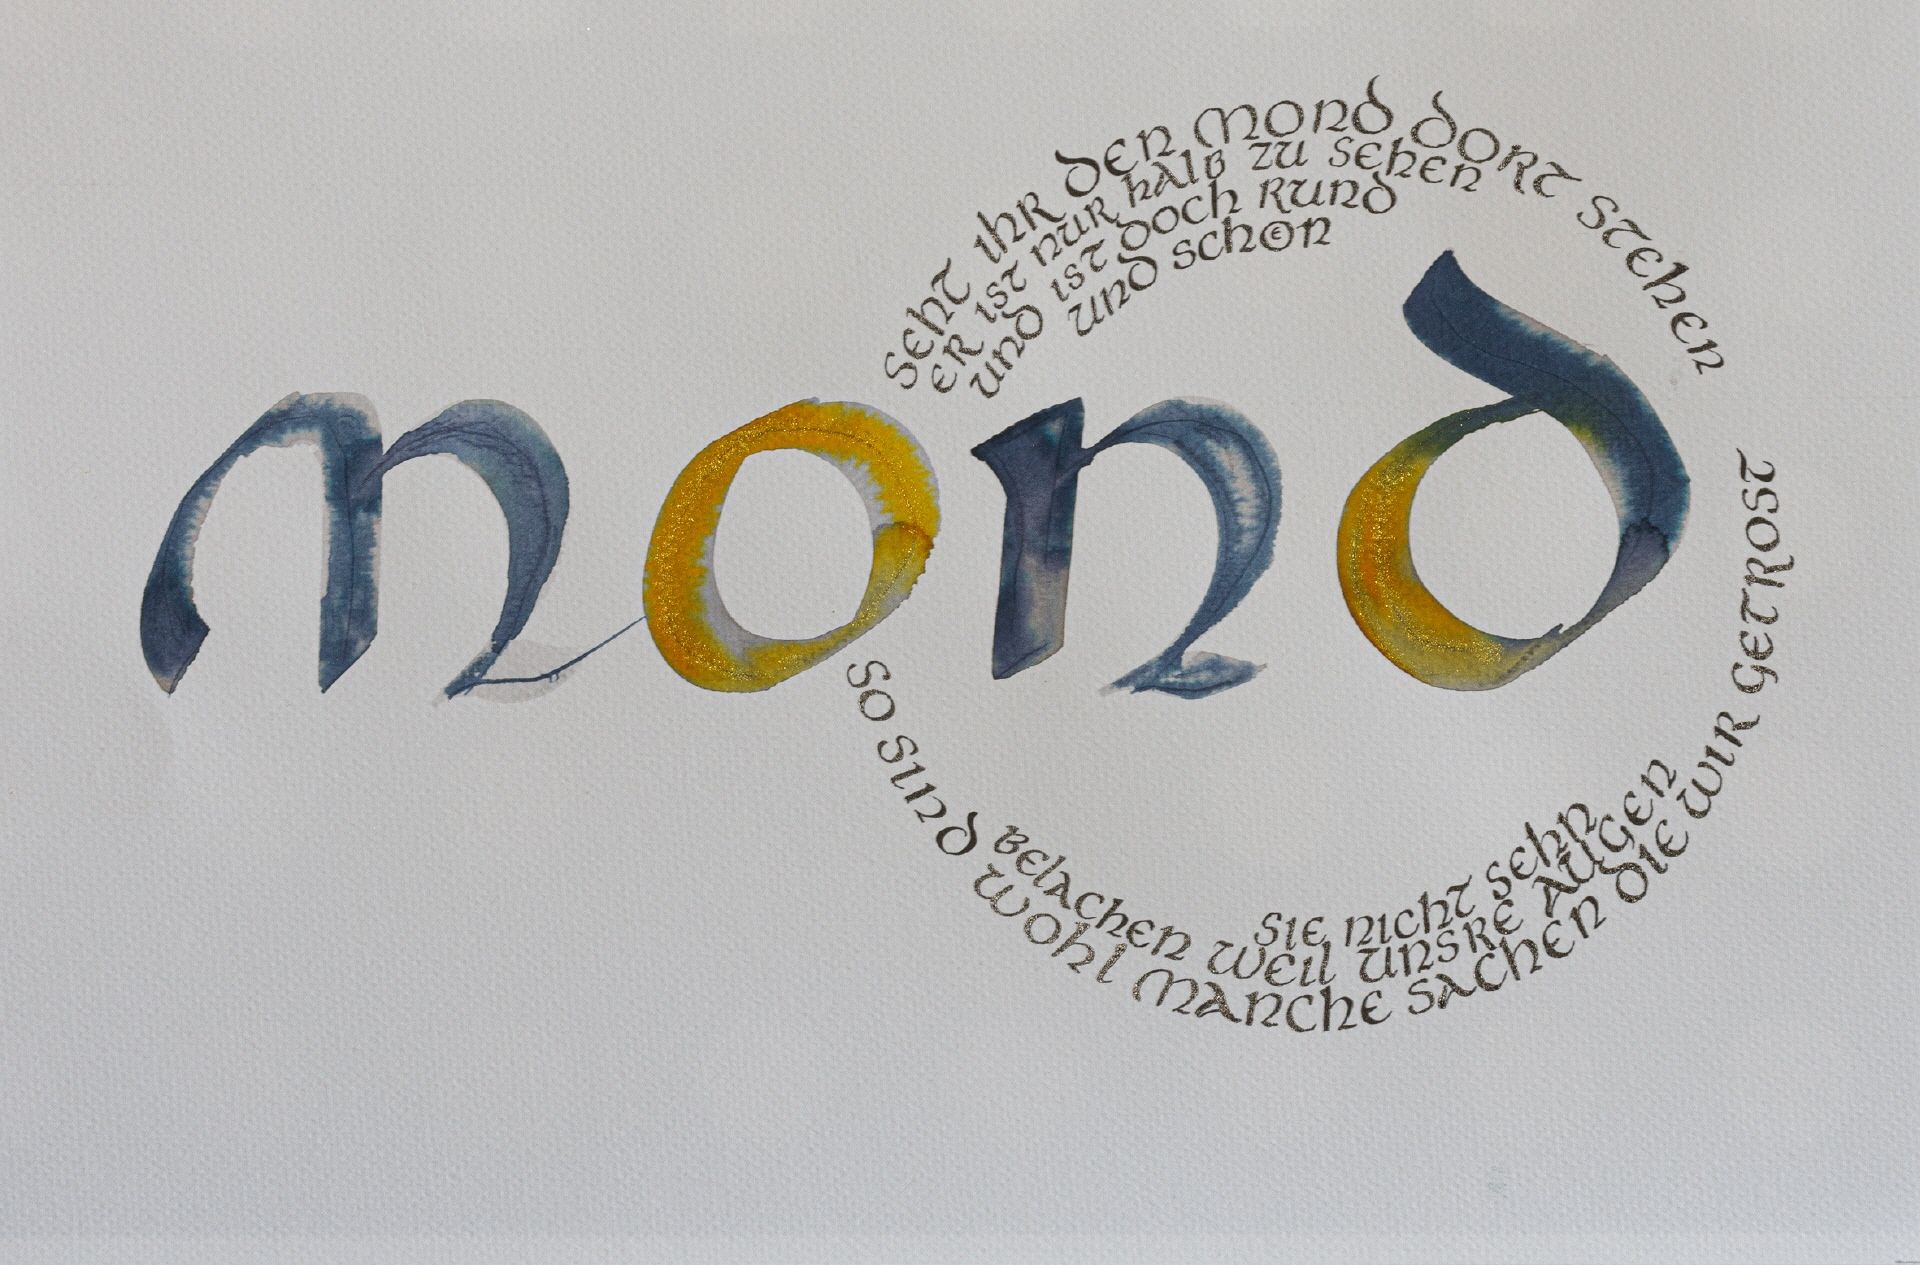 mond
SEHT IHR DEN MOND DORT STEHEN
ER IST NUR HALB ZU SEHEN
UND IST DOCH RUND
UND SCHOEN
SO SIND WOHL MANCHE SACHEN DIE WIR GETROST
BELACHEN WEIL UNSRE AUGEN
SIE NICHT SEHN